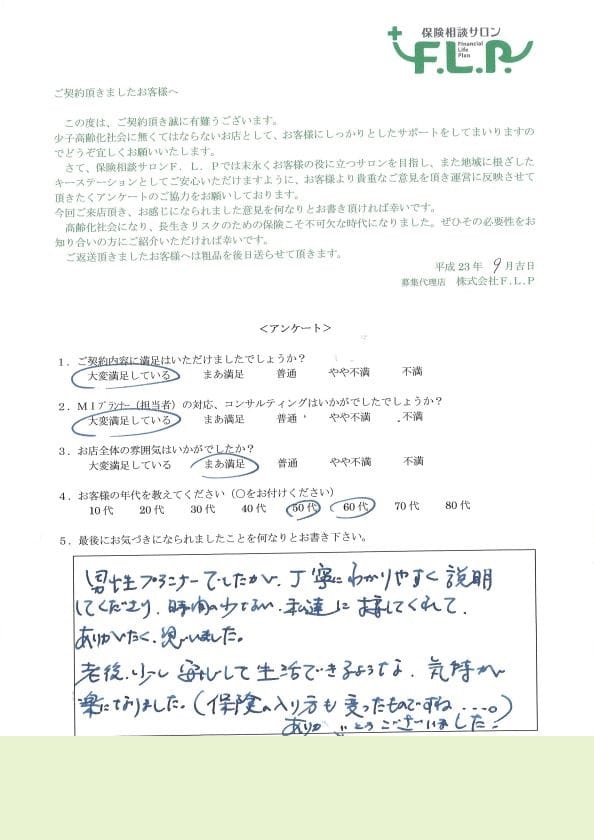 保険相談サロン
F.L.P.
Financial
Life
Plan
ご契約頂きましたお客様へ
この度は、ご契約頂き誠に有難うございます。
少子高齢化社会に無くてはならないお店として、お客様にしっかりとしたサポートをしてまいりますの
でどうぞ宜しくお願いいたします。
さて、保険相談サロンF．L．Pでは末永くお客様の役に立つサロンを目指し、また地域に根ざした
キーステーションとしてご安心いただけますように、お客様より貴重なご意見を頂き運営に反映させて
頂きたくアンケートのご協力をお願いしております。
今回ご来店頂き、お感じになられました意見を何なりとお書き頂ければ幸いです。
高齢化社会になり、長生きリスクのための保険こそ不可欠な時代になりました。ぜひその必要性をお
知り合いの方にご紹介いただければ幸いです。
ご返送頂きましたお客様へは粗品を後日送らせて頂きます。
平成23年 9月吉日
募集代理店 株式会社F.L.P
＜アンケート＞
1．ご契約内容に満足はいただけましたでしょうか？
大変満足している まあ満足 普通 やや不満 不満
2．MIプランナー（担当者）の対応、コンサルティングはいかがでしたでしょうか？
大変満足している まあ満足 普通 やや不満 不満
3．お店全体の雰囲気はいかがでしたか？
大変満足している まあ満足 普通 やや不満 不満
4．お客様の年代を教えてください（○をお付けください）
10代 20代 30代 40代 50代 60代 70代 80代
5．最後にお気づきになられましたことを何なりとお書き下さい。
男性プランナーでしたが、丁寧にわかりやすく説明
してくださり、時間の少ない、私達に接してくれて、
ありがたく、思いました。
老後、少し安心して生活できるような、気持が
楽になりました。（保険の入り方も変ったものですね…。）
ありがとうございました！